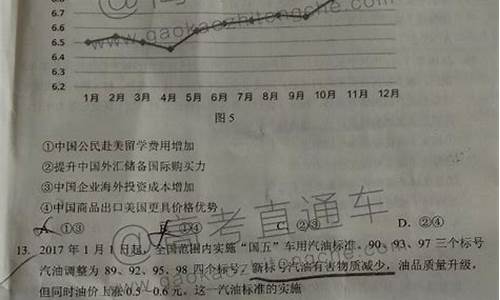 6.7
6.6
6.5
6.4
6.3
6.2
1月 2月 3月 4月 5月 6月 7月 8月 9月 10月 11月 12月
图 5
www.gaokaozhitongche.com
①中国公民赴美留学费用增加
②提升中国外汇储备国际购买力
③中国企业海外投资成本增加
④中国商品出口美国更具价格优势
@高考直通车
①③ ①④ C. ②③ D. ②④
13. 2017 年 1 月 1 日起，全国范围内实施“国五”车用汽油标准。90、93、97 三个标号
汽油调整为 89、92、95、98 四个标号，新标号汽油有害物质减少，油品质量升级，
但同时油价上涨 0.5—0.6 元。这一汽油标准的实施